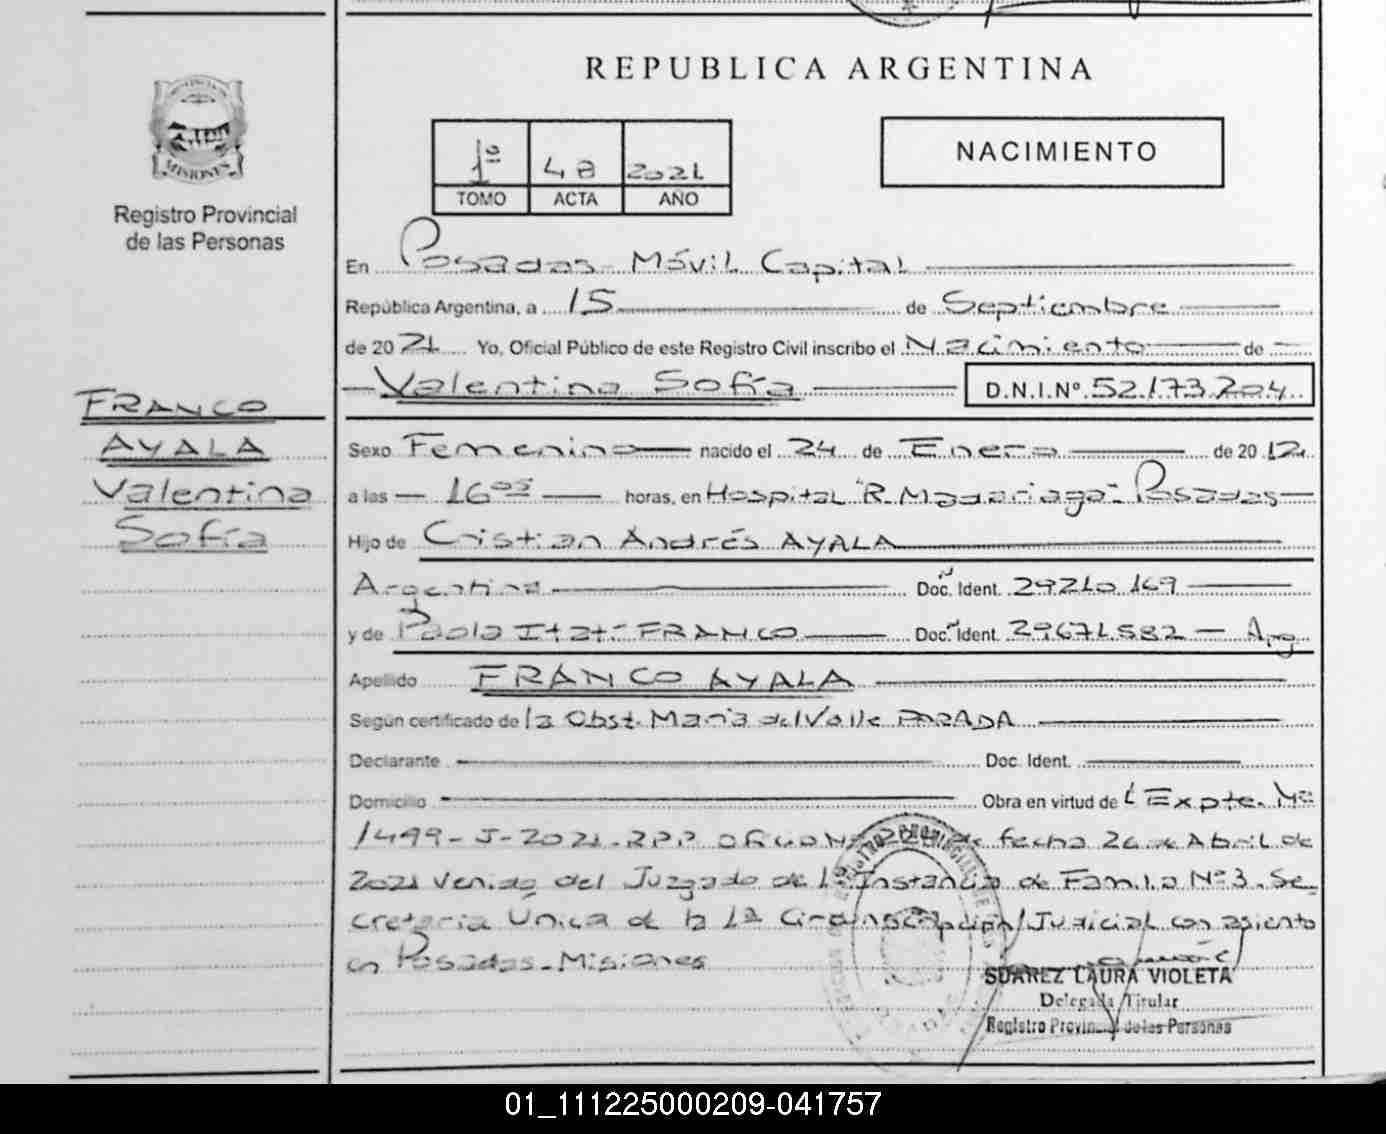 REPUBLICA ARGENTINA
MISIONES
Registro Provincial
de las Personas
1º 48 2021
TOMO ACTA AÑO
NACIMIENTO
En Posadas - Móvil Capital
República Argentina, a 15 de Septiembre
de 2021 Yo, Oficial Público de este Registro Civil inscribo el Nacimiento de
Valentina Sofía D.N.I.Nº 52.173.204
FRANCO
AYALA
Valentina
Sofía
Sexo Femenino nacido el 24 de Enero de 2012
a las 16 05 horas, en Hospital "R. Madariaga" - Posadas
Hijo de Cristian Andrés AYALA
Argentina Doc. Ident. 29210169
y de Paola Itatí FRANCO Doc. Ident. 29671582 - Arg
Apellido FRANCO AYALA
Según certificado de la Obst. María del Valle PARADA
Declarante Doc. Ident.
Domicilio Obra en virtud de Expte. Nº
1499-J-2021-RPP de fecha 26 de Abril de
2021 Venido del Juzgado de 1ª Instancia de Familia Nº 3 - Se
cretaria Unica de la 1ª Circunscripción Judicial con asiento
en Posadas - Misiones
SUAREZ LAURA VIOLETA
Delegada Titular
Registro Provincial de las Personas
01_111225000209-041757